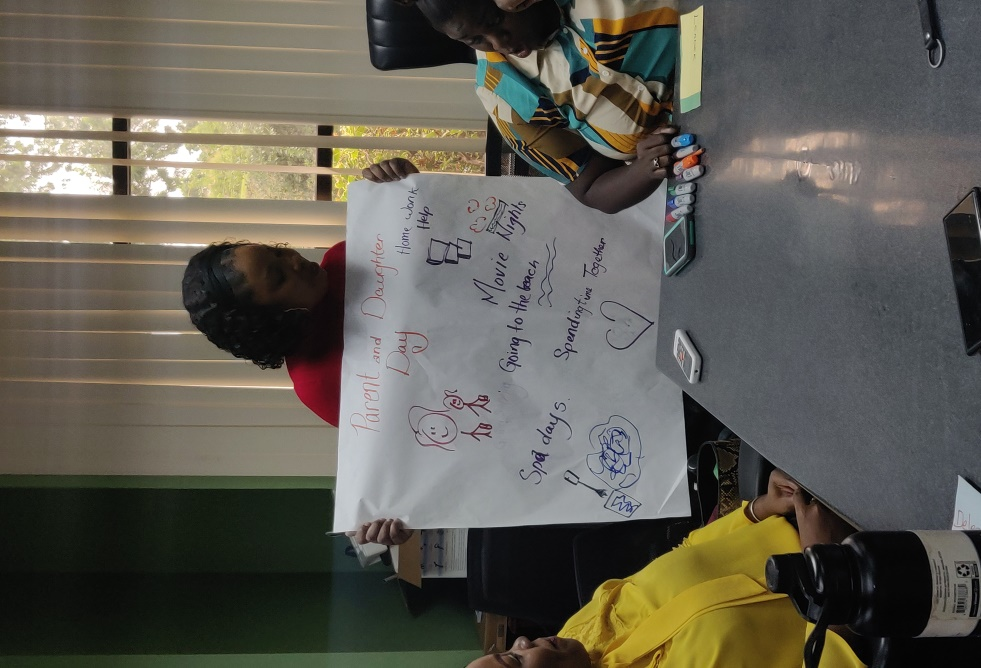 Parent and Daughter
Day
Home work
Help
Movie Nights
Going to the beach
Spa days.
Spendingtime Together